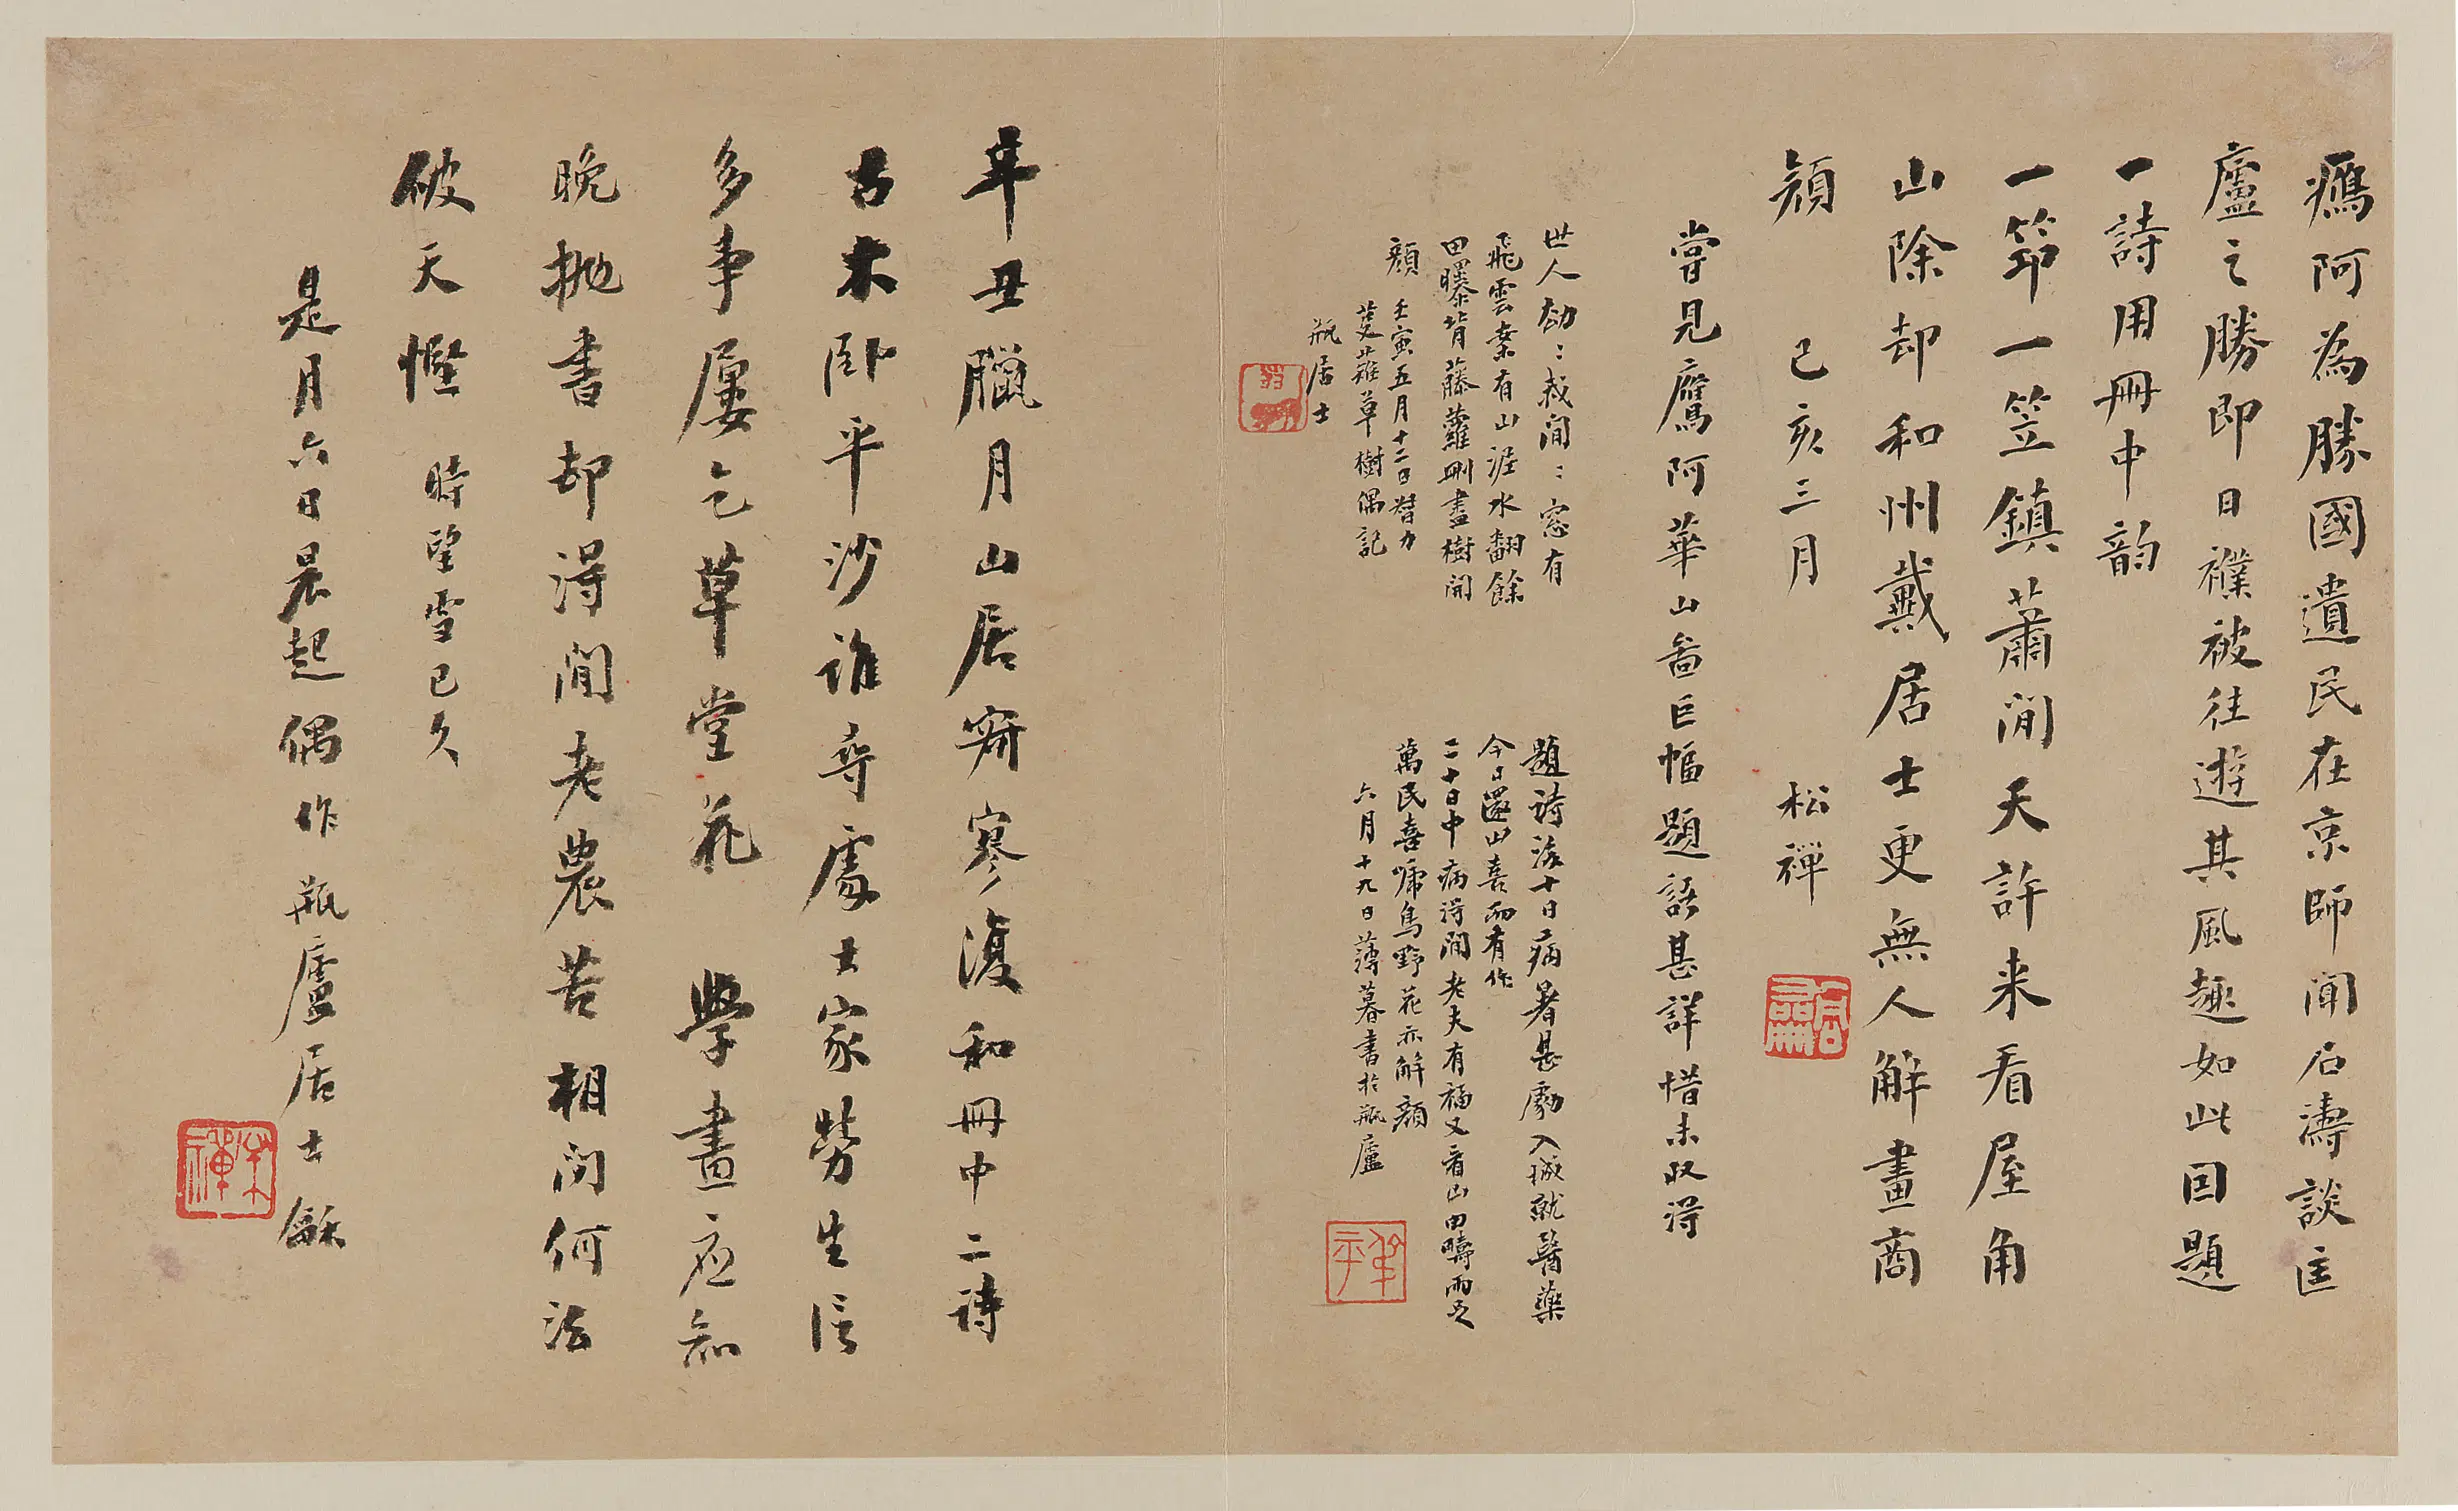 癘阿為勝國遺民在京師聞石濤談匡
廬之勝即日襆被往遊其風趣如此因題
一詩用冊中韵
一笻一笠鎮蕭閒天許来看屋角
山除却和州戴居士更無人解畫商
顏 己亥三月 松禪
嘗見鷹阿華山啚巨幅題語甚詳惜未収得
世人劫:我閒:窓有
飛雲案有山渥水翻餘
田曝背藤蘿刪盡樹開
顏 壬寅五月十二日督力
芟薙草樹偶記
瓶居士
題詩後十日病暑甚劇入城就醫藥
今日還山喜而有作
二十日中病得閒老夫有福又看山田疇雨足
萬民喜啼鳥野花亦解顏
六月十九日薄暮書於瓶廬
辛丑臘月山居窮寒復和冊中二詩
古木卧平沙誰尋處士家勞生信
多事屢乞草堂花 學畫應知
晚拋書却得閒老農苦相問何法
破天慳 時望雪已久
是月六日晨起偶作瓶廬居士龢
松禪